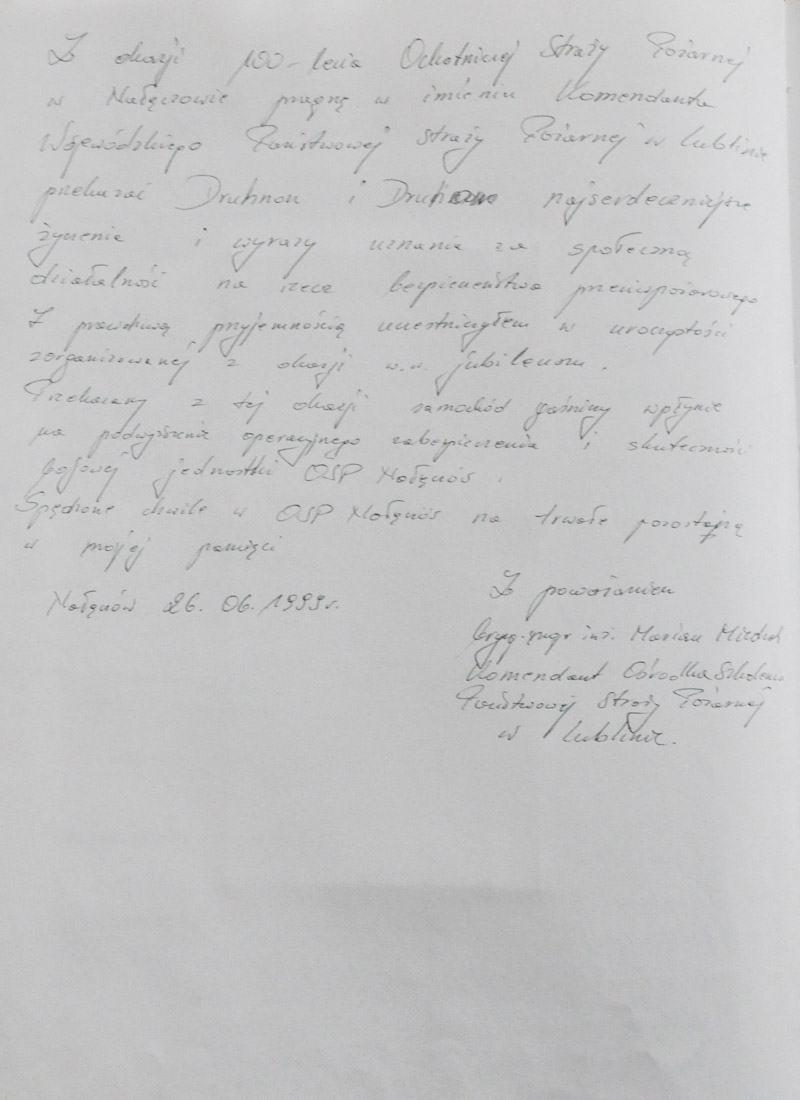 Z okazji 100-lecia Ochotniczej Straży Pożarnej
w Nałęczowie pragnę w imieniu Komendanta
Wojewódzkiego Państwowej Straży Pożarnej w Lublinie
przekazać Druhnom i Druhom najserdeczniejsze
życzenia i wyrazy uznania za społeczną
działalność na rzecz bezpieczeństwa przeciwpożarowego
Z prawdziwą przyjemnością uczestniczyłem w uroczystości
zorganizowanej z okazji w.w. jubileuszu.
Przekazany z tej okazji samochód gaśniczy wpłynie
na podwyższenie operacyjnego zabezpieczenia i skuteczności
bojowej jednostki OSP Nałęczów.
Spędzone chwile w OSP Nałęczów na trwałe pozostają
w mojej pamięci
Z poważaniem
Nałęczów 26. 06. 1999r.
bryg. mgr inż. Marian
Komendant Ośrodka Szkolenia
Państwowej Straży Pożarnej
w Lublinie.